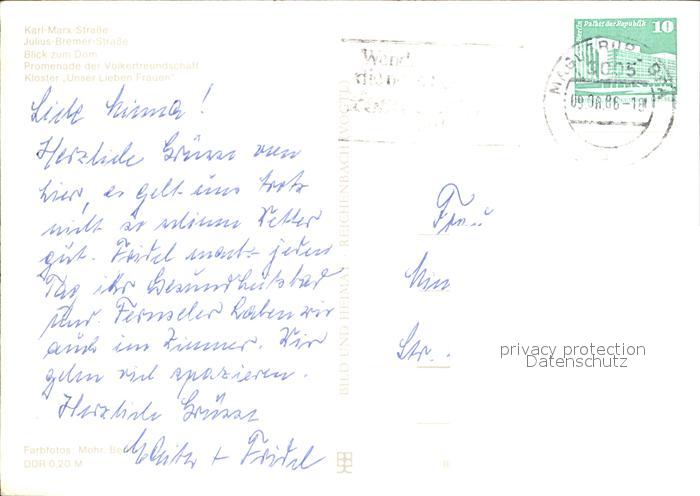 Karl-Marx-Straße
Julius-Bremer-Straße
Blick zum Dom
Promenade der Völkerfreundschaft
Kloster „Unser Lieben Frauen"
Berlin Palast der Republik 10
MAGDEBURG
09.08.86-18
Liebe Minna!
Herzliche Grüsse von
hier, es geht uns trotz
nicht so schönen Wetter
gut. Fridel macht jeden
Tag ihr Gesundheitsbad
und Fernseher haben wir
auch im Zimmer. Wir
gehen viel spazieren.
Herzliche Grüsse
+ Fridel
Frau
Str.
BILD UND HEIMAT · REICHENBACH (VOGTL)
privacy protection
Datenschutz
Farbfotos: Mohr,
DDR 0,20 M